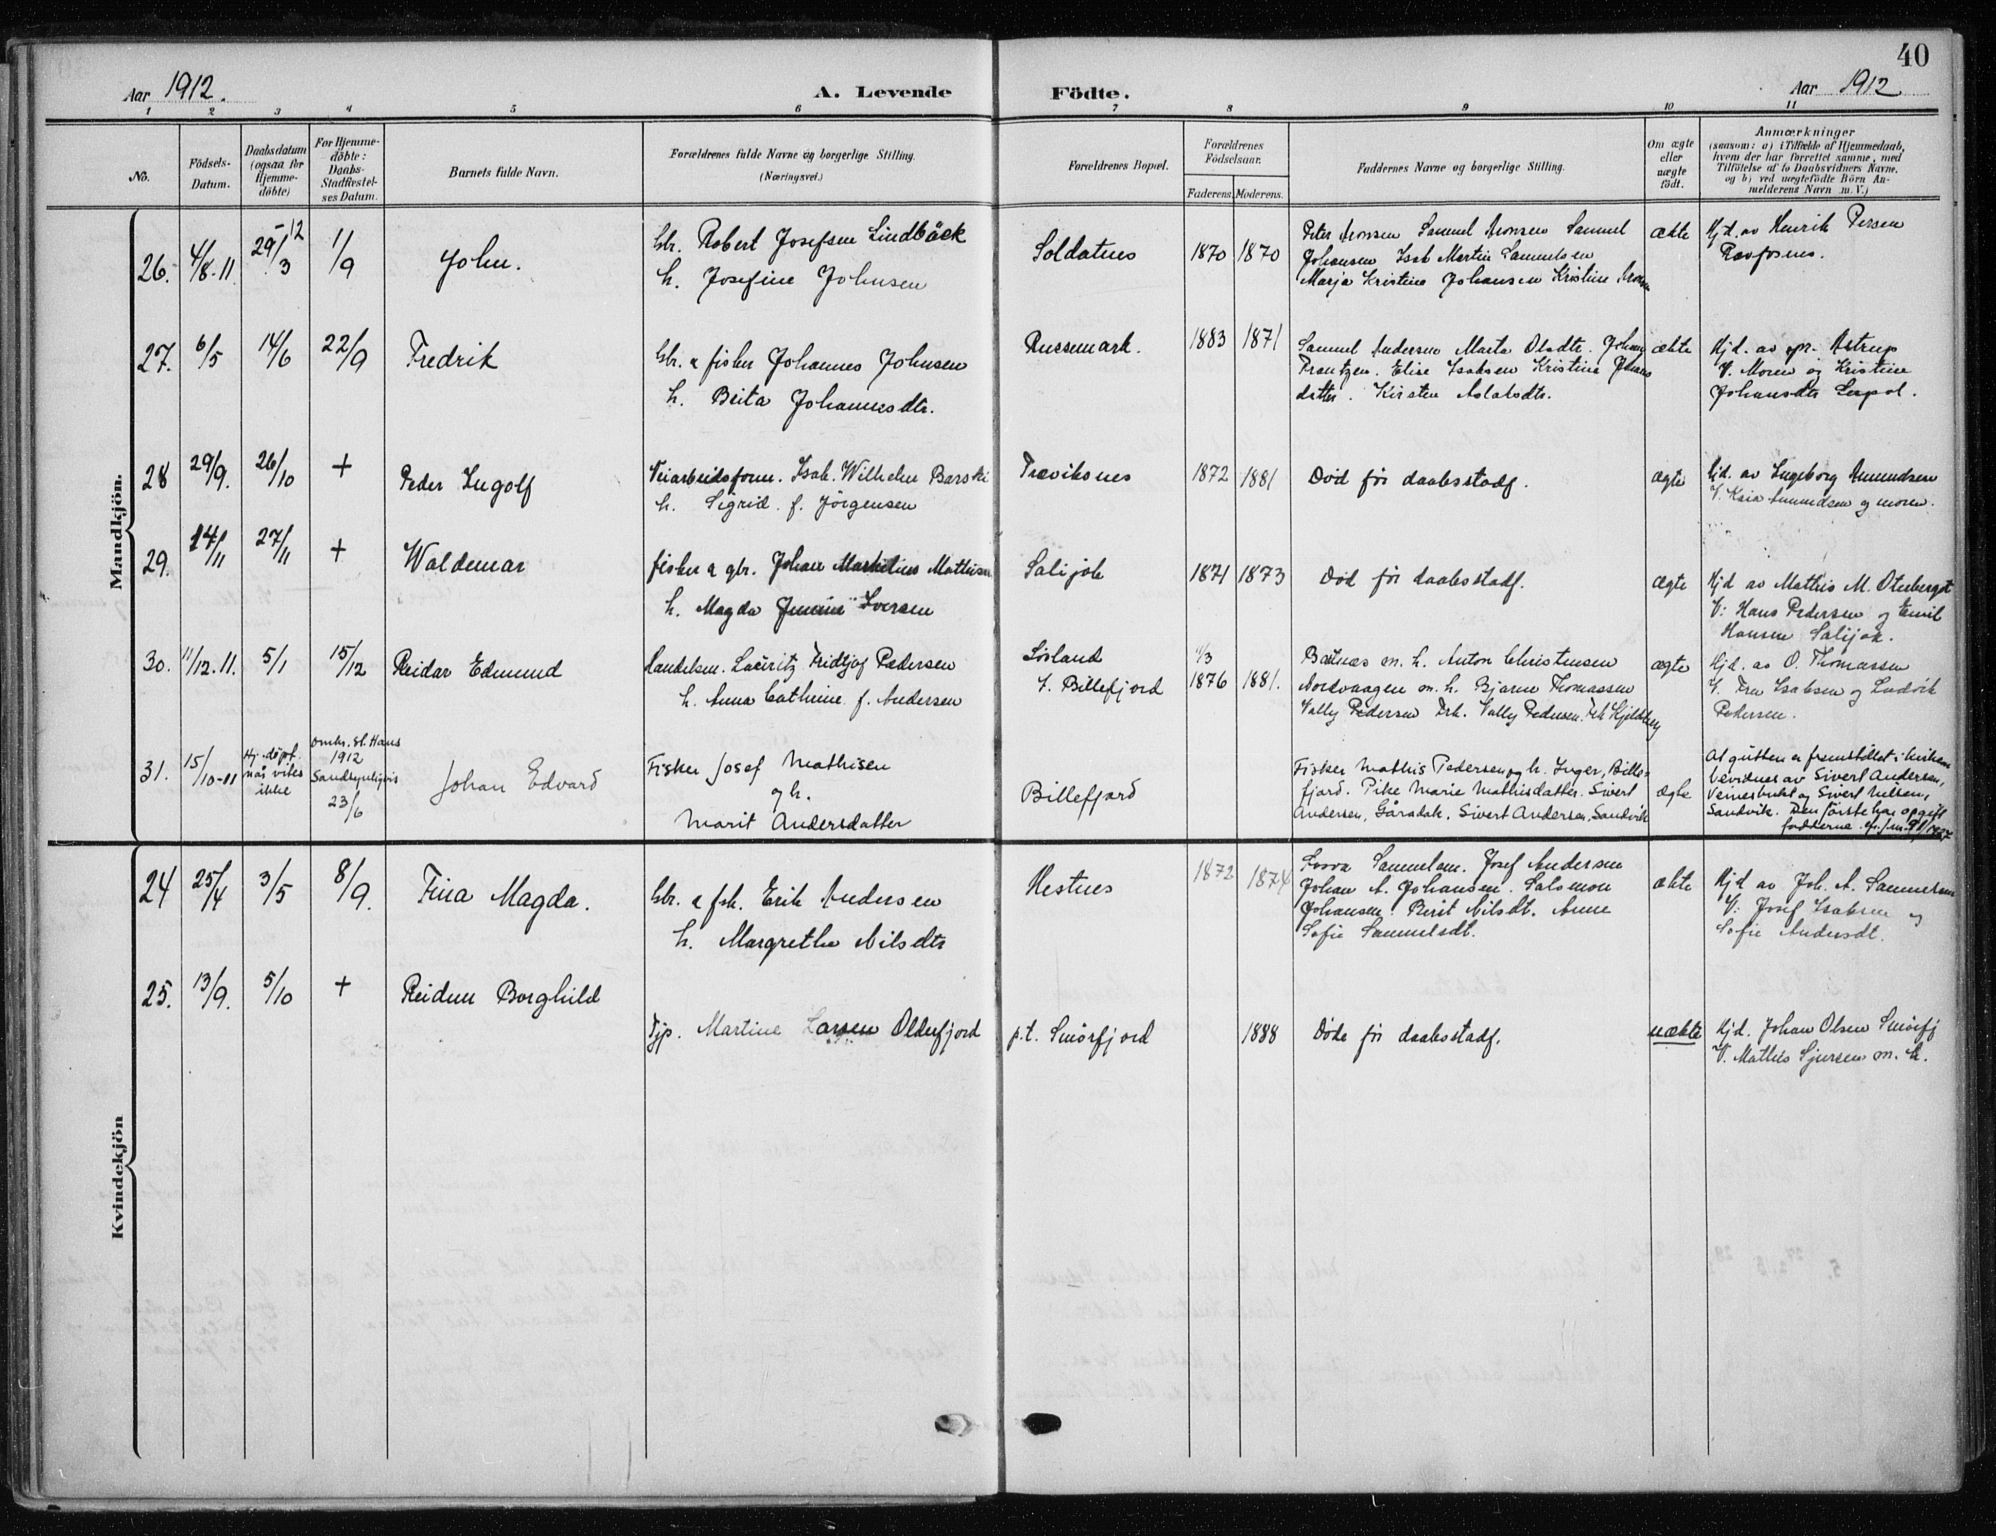 40
Aar 1912.
A. Levende
Födte.
Aar 1912
1 2 3 4 5 6 7 8 9 10 11
No.
Födsels-Datum.
Daabsdatum (ogsaa for Hjemme-döbte)
For Hjemme-döbte: Daabs-Stadfæstel-ses Datum.
Barnets fulde Navn.
Forældrenes fulde Navne og borgerlige Stilling.
(Næringsvei.)
Forældrenes Bopæl.
Forældrenes Födselsaar.
Faderens Moderens.
Faddernes Navne og borgerlige Stilling.
Om ægte eller uægte födt.
Anmærkninger
(saasom: a) i Tilfælde af Hjemmedaab,
hvem der har forrettet samme, med
Tilföielse af to Daabsvidners Navne.
og b) ved uægtefödte Börn An-
melderens Navn m. V.)
Mandkjön.
26. 4/8-11 29/3-12 1/9 John.
Gbr. Robert Josefsen Lindbäck
h. Josefine Johnsen
Soldatnes 1870 1870
Peter Aronsen Samuel Aronsen Samuel
Johansen Isak Martin Samuelsen
Marja Kristine Johansen Kristine Aronsen
ækte
Hjd. av Henrik Persen
27. 6/5 14/6 22/9 Fredrik
Gbr. & fisker Johannes Johnsen
h. Brita Johannesdtr.
Russemark. 1883 1871
Samuel Andersen Marta Olsdtr. Johan
Frantzen. Elise Isaksen Kristine Johans
datter. Kirsten Aslaksdtr.
ækte
Hjd. av spr. Astrup
V. Moren og Kristine
Johansdtr Leipol.
28 29/9. 26/10 + Peder Ingolf
Veiarbeidsform. Isak Wilhelm Barski
h. Sigrid f. Jørgensen
Træviknes 1872 1881
Død før daabsstadf.
ægte
Hjd. av Ingeborg Amundsen
V. Kaia Amundsen og moren.
29. 14/11 27/11 + Waldemar
fisker & gbr. Johan Markelius Mathisen
h. Magda Iversen
Salijok 1871 1873
Død før daabsstadf.
ægte
Hjd av Mathis M. Utsbergst
V: Hans Pedersen og Emil
Hansen Salijok.
30. 11/12.11. 5/1 15/12 Reidar Edmund
Handelsm. Lauritz Fridtjof Pedersen
h. Anna Cathrine f. Andersen
Sörland
I. Billefjord
4/3
1876 1881.
Baatnæs m. h. Anton Christensen
Nordvaagen m. h. Bjarne Thomassen
Vally Pedersen Frk. Vally Pedersen. Frk Kjeldsberg
ægte
Hjd. av O. Thomassen
V. Fru Isaksen og Ludvik
Pedersen.
31. 15/10-11
Hj. döpt. naar vites ikke
omkr. St. Hans 1912 Sandsynligvis 23/6
Johan Edvard
Fisker Josef Mathisen
og h.
Marit Andersdatter
Billefjord
Fisker Mathis Pedersen og h. Inger, Bille-
fjord. Pike Marie Mathisdatter. Sivert
Andersen, Gåradak. Sivert Andersen, Sandvik
ægte
At gutten er fremstillet i kirken
bevidnes av Sivert Andersen,
Veinesbukt og Sivert Nilsen,
Sandvik. Den förste har opgift
fadderne.
Kvindekjön
24 25/4 3/5 8/9. Tina Magda.
Gbr. & fsk. Erik Andersen
h. Margrethe Nilsdtr
Hestnes 1872 1874
Samuelsen. Josef Andersen
Johan A. Johansen. Salomon
Johansen. Berit Nilsdt. Anne
Sofie Samuelsdt.
ækte
Hjd av Joh. A. Samuelsen
V: Josef Isaksen og
Sofie Andersdt.
25. 13/9. 5/10 + Reidun Borghild
Tjp. Martine Larsen Olderfjord
p.t. Smörfjord 1888
Døde før daabsstadf.
uækte
Hjd. Johan Olsen Smörfj
V. Mathis Sjursen m. h.